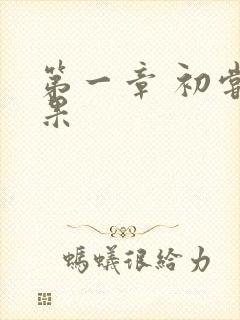 第一章 初尝
果
螞蟻很給力